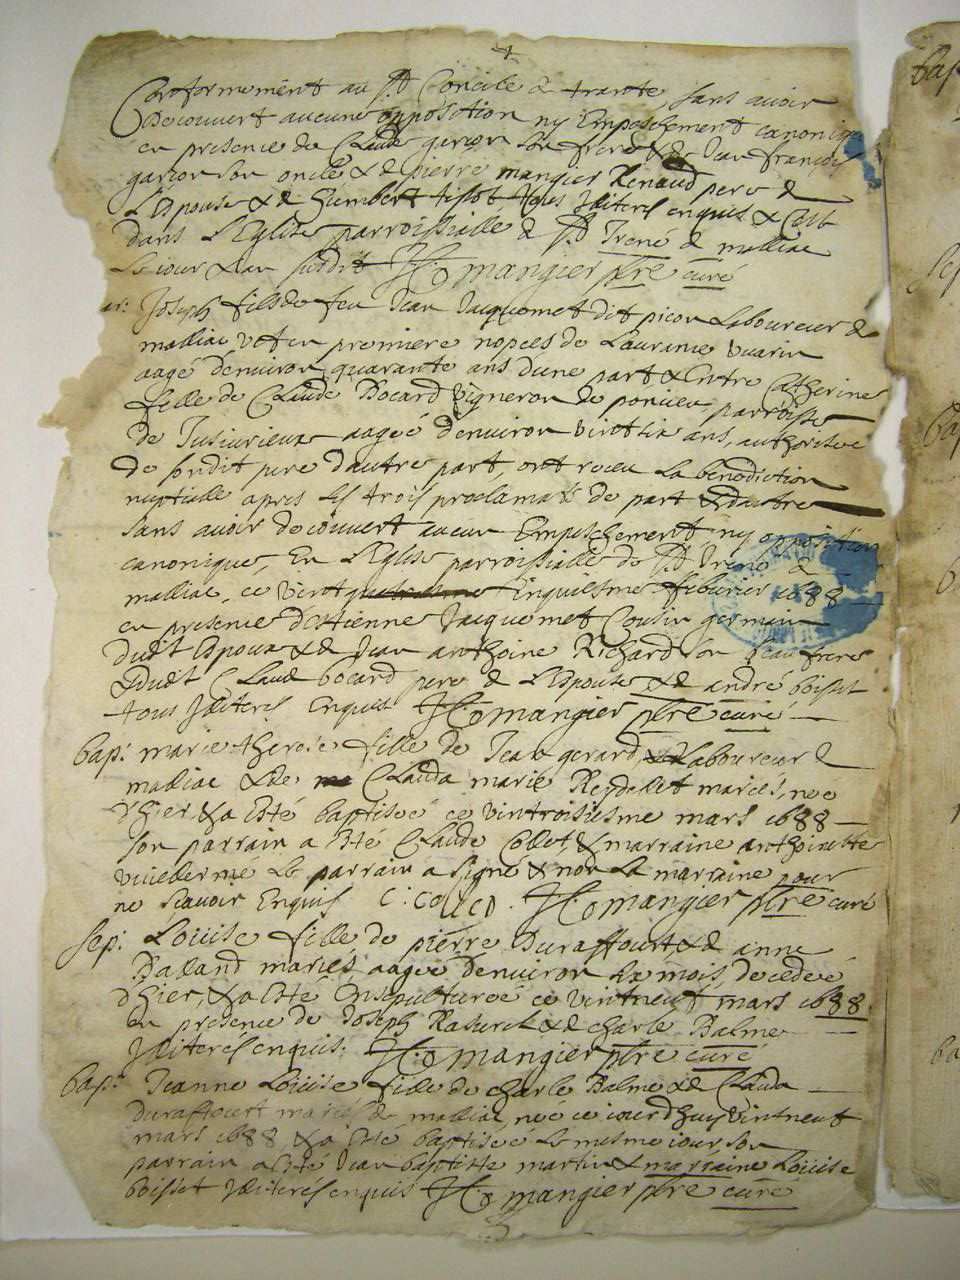 Conformement au St Concile de trante, sans avoir
decouvert aucune opposition ny Empeschement canonique
en presence de Claude garcon son frere & de Jean françois
garcon son oncle & de pierre mangier Renaud pere de
L'espouse & de humbert tissot tous Jliterés enquis & C'est
dans L'Eglise parroissialle de St Irené de malliac
Le jour & an susdit H: mangier pbre curé
ar: Joseph fils de feu Jean Jacquemet dit picon Laboureur de
malliac vef en premiere nopces de Laurence vuarin
aagé denviron quarante ans dune part & Entre Catherine
fille de Claude Bocard vigneron de poncieu, parroisse
de Jusurieux aagée denviron vint six ans, authorisee
de sondit pere dautre part, ont receu La benediction
nuptialle apres Les trois proclamaõs de part & dautre
sans avoir decouvert aucun Empeschement, ny opposition
canonique, En L'Eglise parroissialle de St Irené de
malliac, ce vint cinquiesme febvrier 1688
en presence destienne Jacquemet Cousin germain
dudt espoux & de Jean anthoine Richard son beau frere
& dudt Claude bocard pere de L'espouse & de andré boisset
tous Jliterés Enquis H: mangier pbre curé
bap: marie therese fille de Jean gerard, Laboureur de
malliac & de Clauda marie Reydellet mariés, nee
d'hier, & a esté baptisee ce vintroisiesme mars 1688
son parrain a esté Claude Collet, & marraine anthoinette
vuillermé Le parrain a signé & non La marraine pour
ne scavoir Enquis C. COLLED. H: mangier pbre curé
sep: Loüise fille de pierre Duraffourt & de anne
Balland mariés aagee denviron six mois, decedée
d'hier, & a esté Ensepulturée ce vintneuf mars 1688.
en presence de Joseph & de charle Balme
Jliterés enquis. H: mangier pbre curé
bap: Jeanne Loüise fille de charle Balme & de Clauda
duraffourt mariés de malliac, nee ce jourdhuy vintneuf
mars 1688 & a esté baptisee Le mesme jour, son
parrain a esté Jean baptiste martin & marraine Loüise
boisset Jliterés enquis H: mangier pbre curé